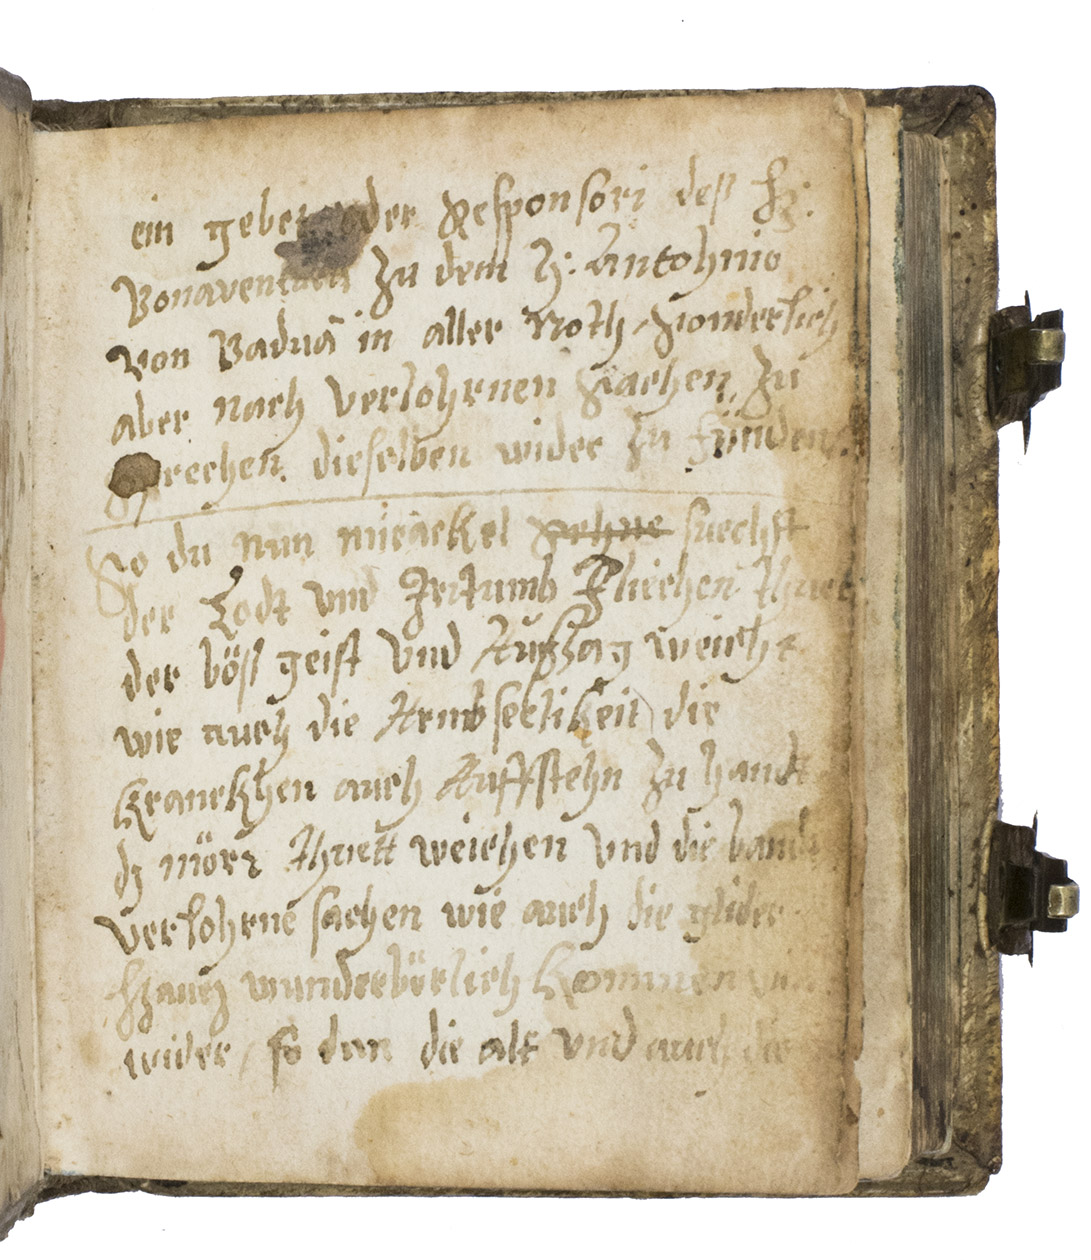 ein gebet oder Responsori deß H:
Bonaventura zu dem H: Antohnio
von Baduâ in aller Noth, sonderlich
aber nach verlohrnen sachen, zu
sprechen. dieselben wider zu fünden.
So du nun mirackel suechst
der Todt und Irrtumb fliechen thuet
der böß geist und Aussazg weicht
wie auch die Armbseelikeit, die
kranckhen auch Auffstehn zu handt
dz mörz thuett weichen und die bandt
verlohrne sachen wie auch die glider
wunderbörlich kommen
wider, so dan die alt und auch die